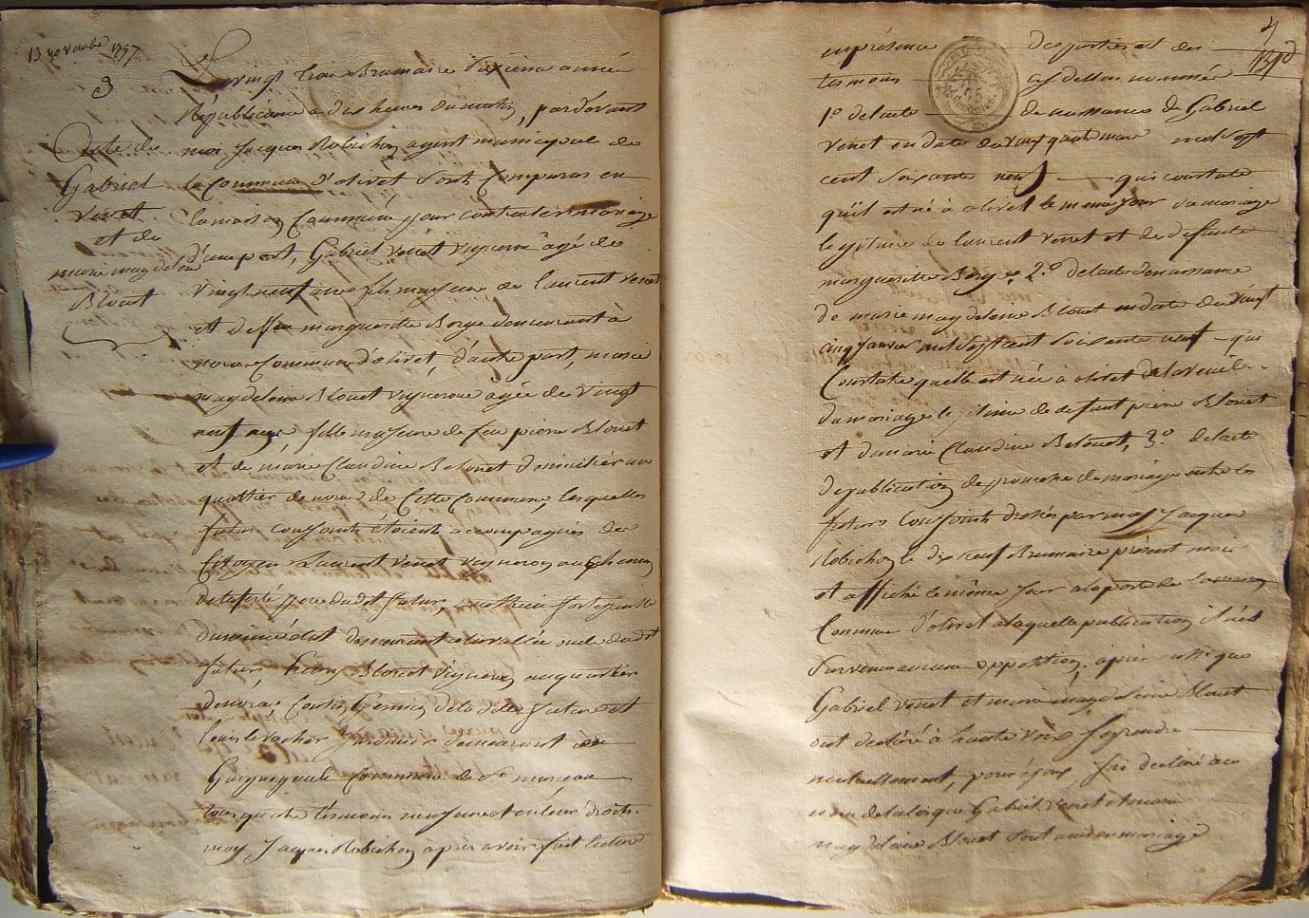 13 novembre 1797
3
Acte de
Gabriel
Venet
et de
marie magdeleine
Blouet
Le vingt trois Brumaire sixieme année
Républicaine a dix heures du matin, pardevant
moi Jacques Robichon agent municipal de
la Commune d'olivet sont Comparus en
la maison Commune pour contracter mariage
d'une part, Gabriel Venet vigneron agé de
vingt neuf ans fils majeur de laurent venet
et deffunte marguerite Borge demeurant à
Commune d'olivet, d'autre part, marie
magdeleine Blouet vigneronne agée de vingt
neuf ans fille majeure de feu pierre Blouet
et de marie Claudine Belouet domiciliés au
quartier de de Cette Commune, lesquelles
futurs conjoints étoient accompagnés des
Citoyens Laurent Venet vigneron
pere dudit futur, mathieu
demeurant dudit
futur, Blouet vigneron au quartier
Cousin Germain de la dite future et
louis jardinier demeurant
Commune de St marceau
tous quatre temoins majeurs
moy Jacques Robichon apres avoir fait lecture
4
en présence des parties et des
temoins cy dessus nommés
1° de l'acte de naissance de Gabriel
Venet en date du vingt quatre mars mil sept
cent soixante neuf qui constate
qu'il est né à olivet le meme jour du mariage
legitime de laurent Venet et de deffunte
marguerite Borge 2.° de l'acte de naissance
de marie magdeleine Blouet en date du vingt
cinq janvier mil sept cent soixante neuf qui
Constate quelle est née à olivet de la veille
du mariage legitime de defunt pierre Blouet
et de marie Claudine Belouet, 3.° de l'acte
de publication de promesse de mariage entre les
futurs conjoints dressé par moy Jacques
Robichon le dix neuf Brumaire présent mois
et affiché le même jour a la porte de la maison
Commune d'olivet a laquelle publication il n'est
survenu aucune opposition, après aussi que
Gabriel Venet et marie magdeleine Blouet
ont declaré à haute voix se prendre
mutuellement, pour époux, j'ai declaré au
nom de la loi que Gabriel Venet et marie
magdeleine Blouet sont unis en mariage